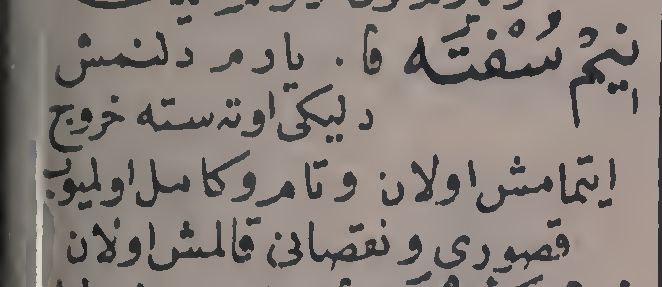 نِيمْ سُفْتَه فا. يارم دلنمش
دليكى اوته سته خروج
ايتمامش اولان وتام وكامل اولميوب
قصورى ونقصانى قالمش اولان